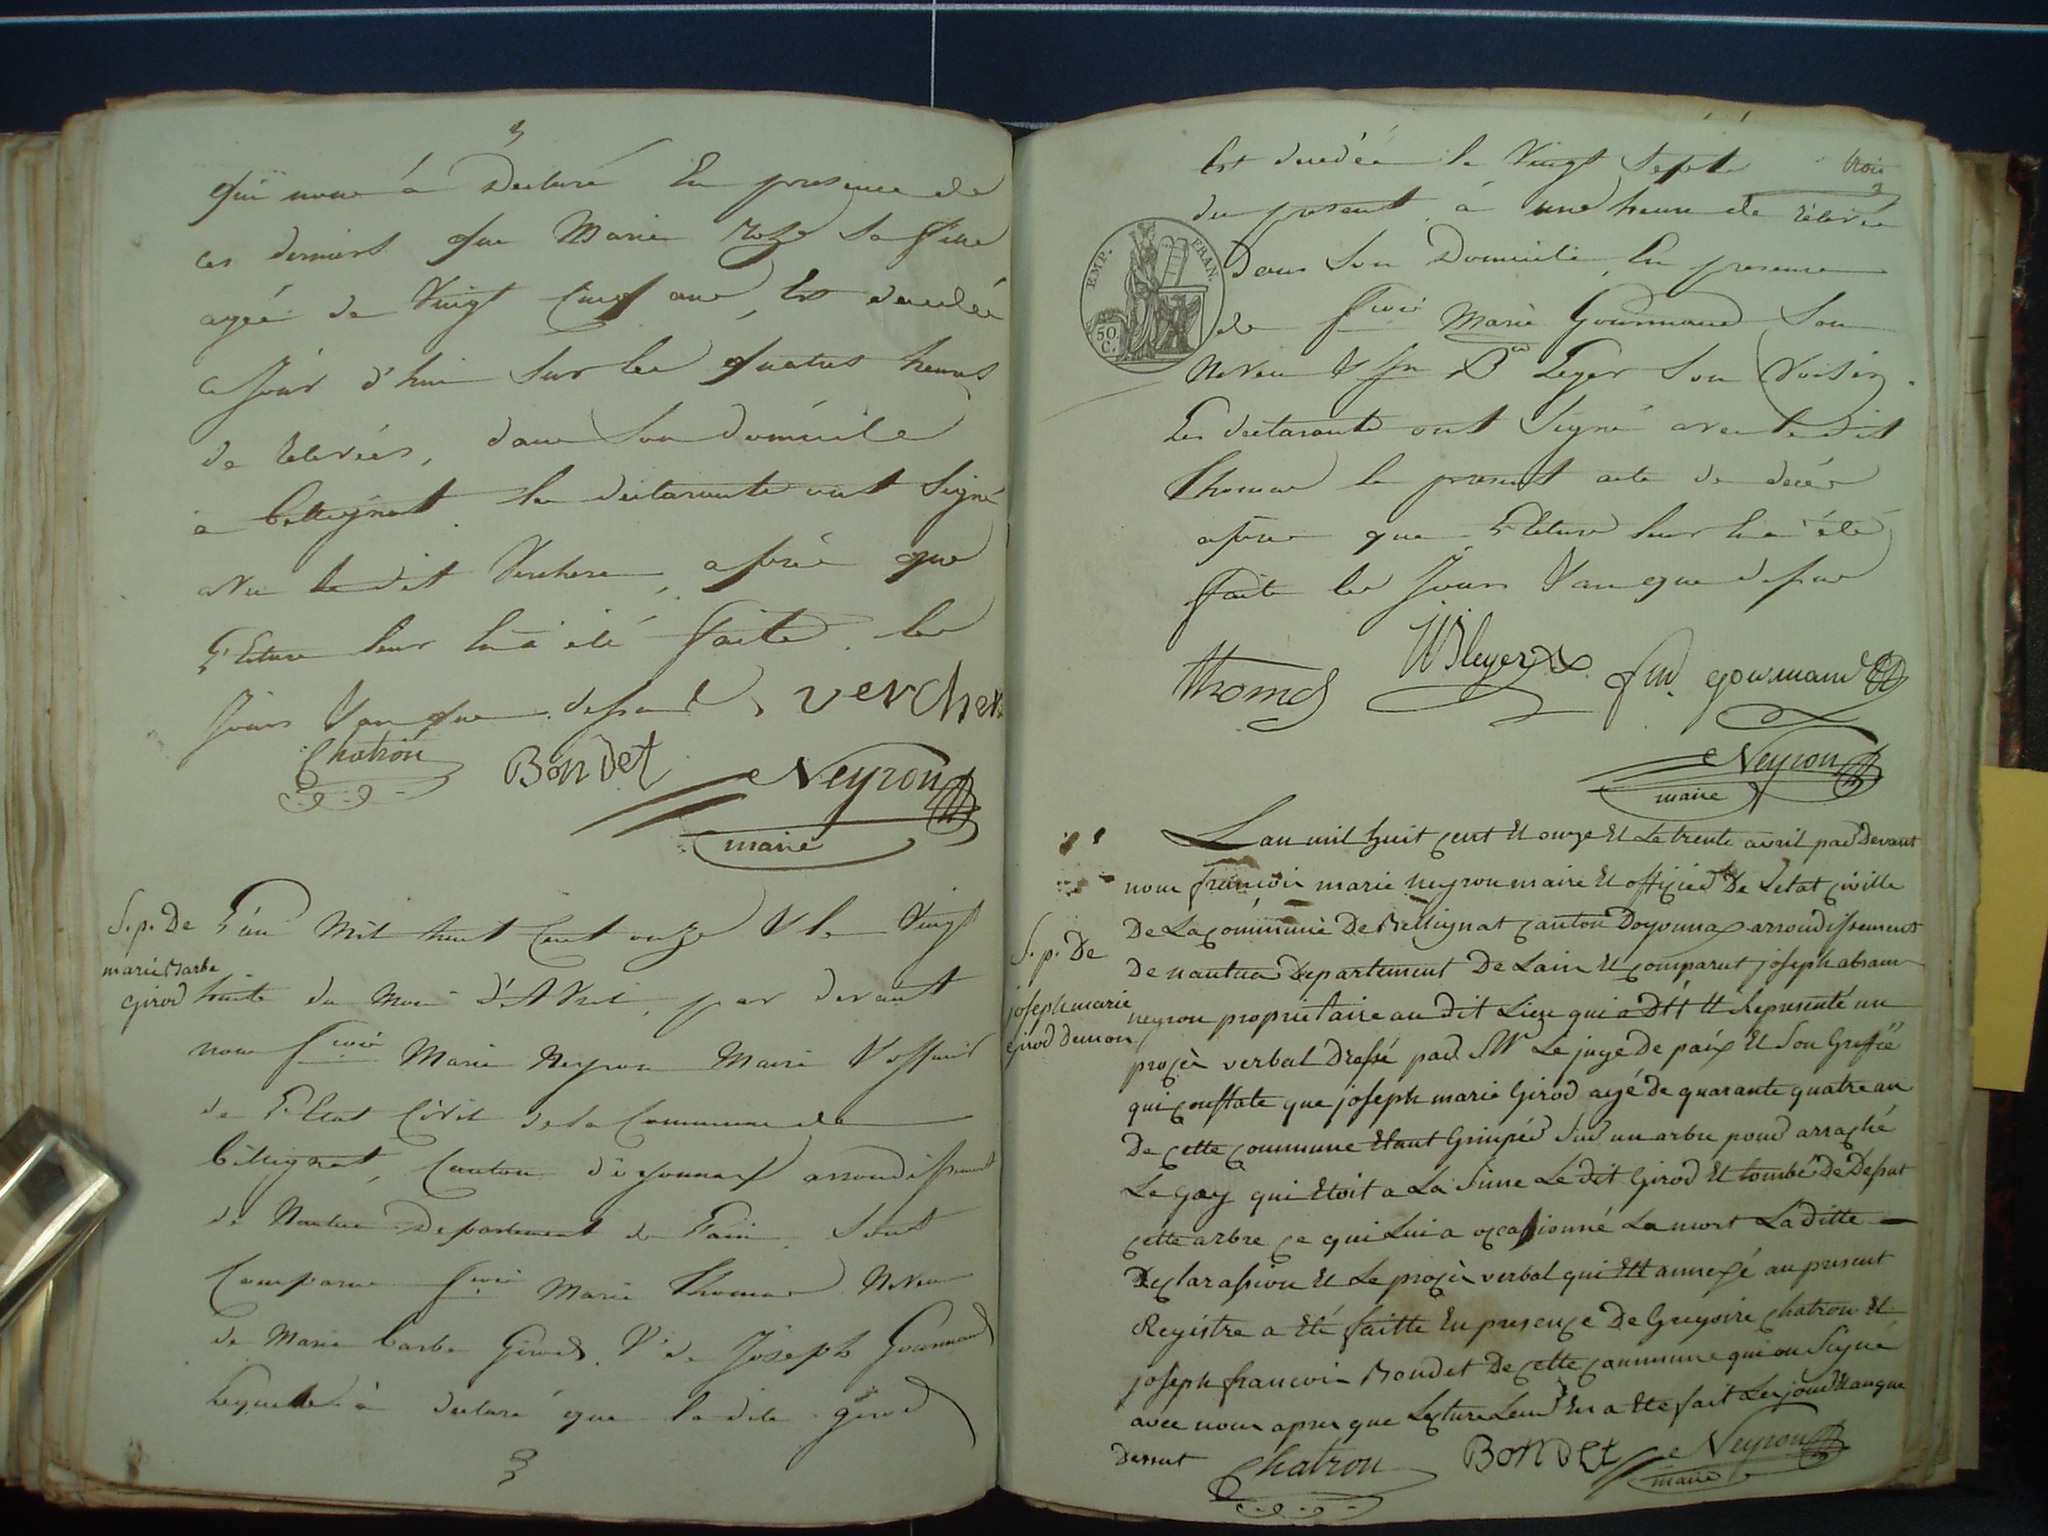 3
qui nous à Déclaré En presence de
ces derniers que Marie Roze Sa fille
agée de Vingt Cinq ans, Est decedée
ce Jour d'hui Sur les quatres heures
de relevées, dans Son domicile
à Béllignat les declarants ont Signé
avec le dit Verchere, après que
Lecture leur En à été faite les
Jours & an que dessus, Verchere
Chatron Bondet Neyron
maire
S. p. De
marie Barbe
Girod
L'an Mil huit Cent onze & le Vingt
huite du Mois d'Avril, par devant
nous f.cois Marie Neyron Maire & officier
de L'Etat Civil de la Commune de
Béllignat, Canton d'oyonnax arrondissement
de Nantua Departement de L'ain, Sont
Comparus f.cois Marie Thomas Neveu
de Marie barbe Girod, V.e de Joseph Gourmand
Lequel à declaré que la dite girod
3
trois
3
Est decedée le Vingt Septe
du présent, à une heure de relevée
EMP. FRAN.
50
C.
Dans Son Domicile, En presence
de f.cois Marie Gourmand Son
Neveu & Jn B.te Leger Son Voisin.
Les declarants ont Signé avec le dit
Thomas le present acte de decès
après que Lecture leur En à été
faite les Jours & an que dessus
Thomas JB leger fm. gourmand
Neyron
maire
S. p. De
joseph marie
girod demon
Lan mil huit cent Et onze Et Le trente avril par Devant
nous françois marie neyron maire Et officier De Letat civille
De La commune De Bellignat canton Doyonnax arrondissement
De nantua Departement De Lain Et comparut joseph abram
neyron proprietaire au dit Lieux qui a Dtt Et Représenté un
procès verbal Dressé par Mr Le juge De paix Et Son Greffié
qui constate que joseph marie Girod agé de quarante quatre an
De cette commune Etant Grinpée Sur un arbre pour arraché
Le gay qui Etoit a La Sime Le dit Girod Et tombé De Desut
cette arbre ce qui Lui a occasionné La mort La ditte
Declarassion Et Le procès verbal qui Ett annexé au present
Registre a Eté faitte En presence De Gregoire chatron Et
joseph francoi Bondet De cette commune qui on Signé
avec nous apres que Lecture Leur En a Ete fait Les jour Et an que
Dessut Chatron Bondet Neyron
maire